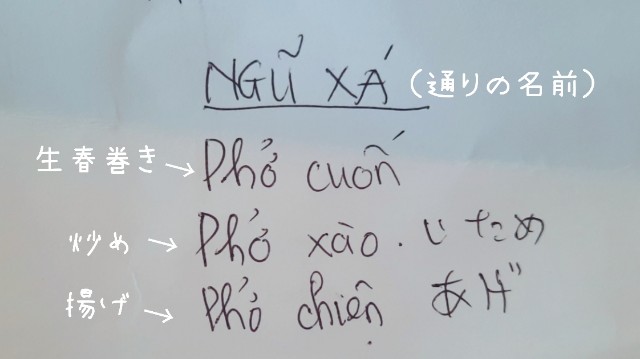 NGŨ XÁ (通りの名前)
生春巻き→ Phở cuốn
炒め → Phở xào . いため
揚げ → Phở chiên. あげ